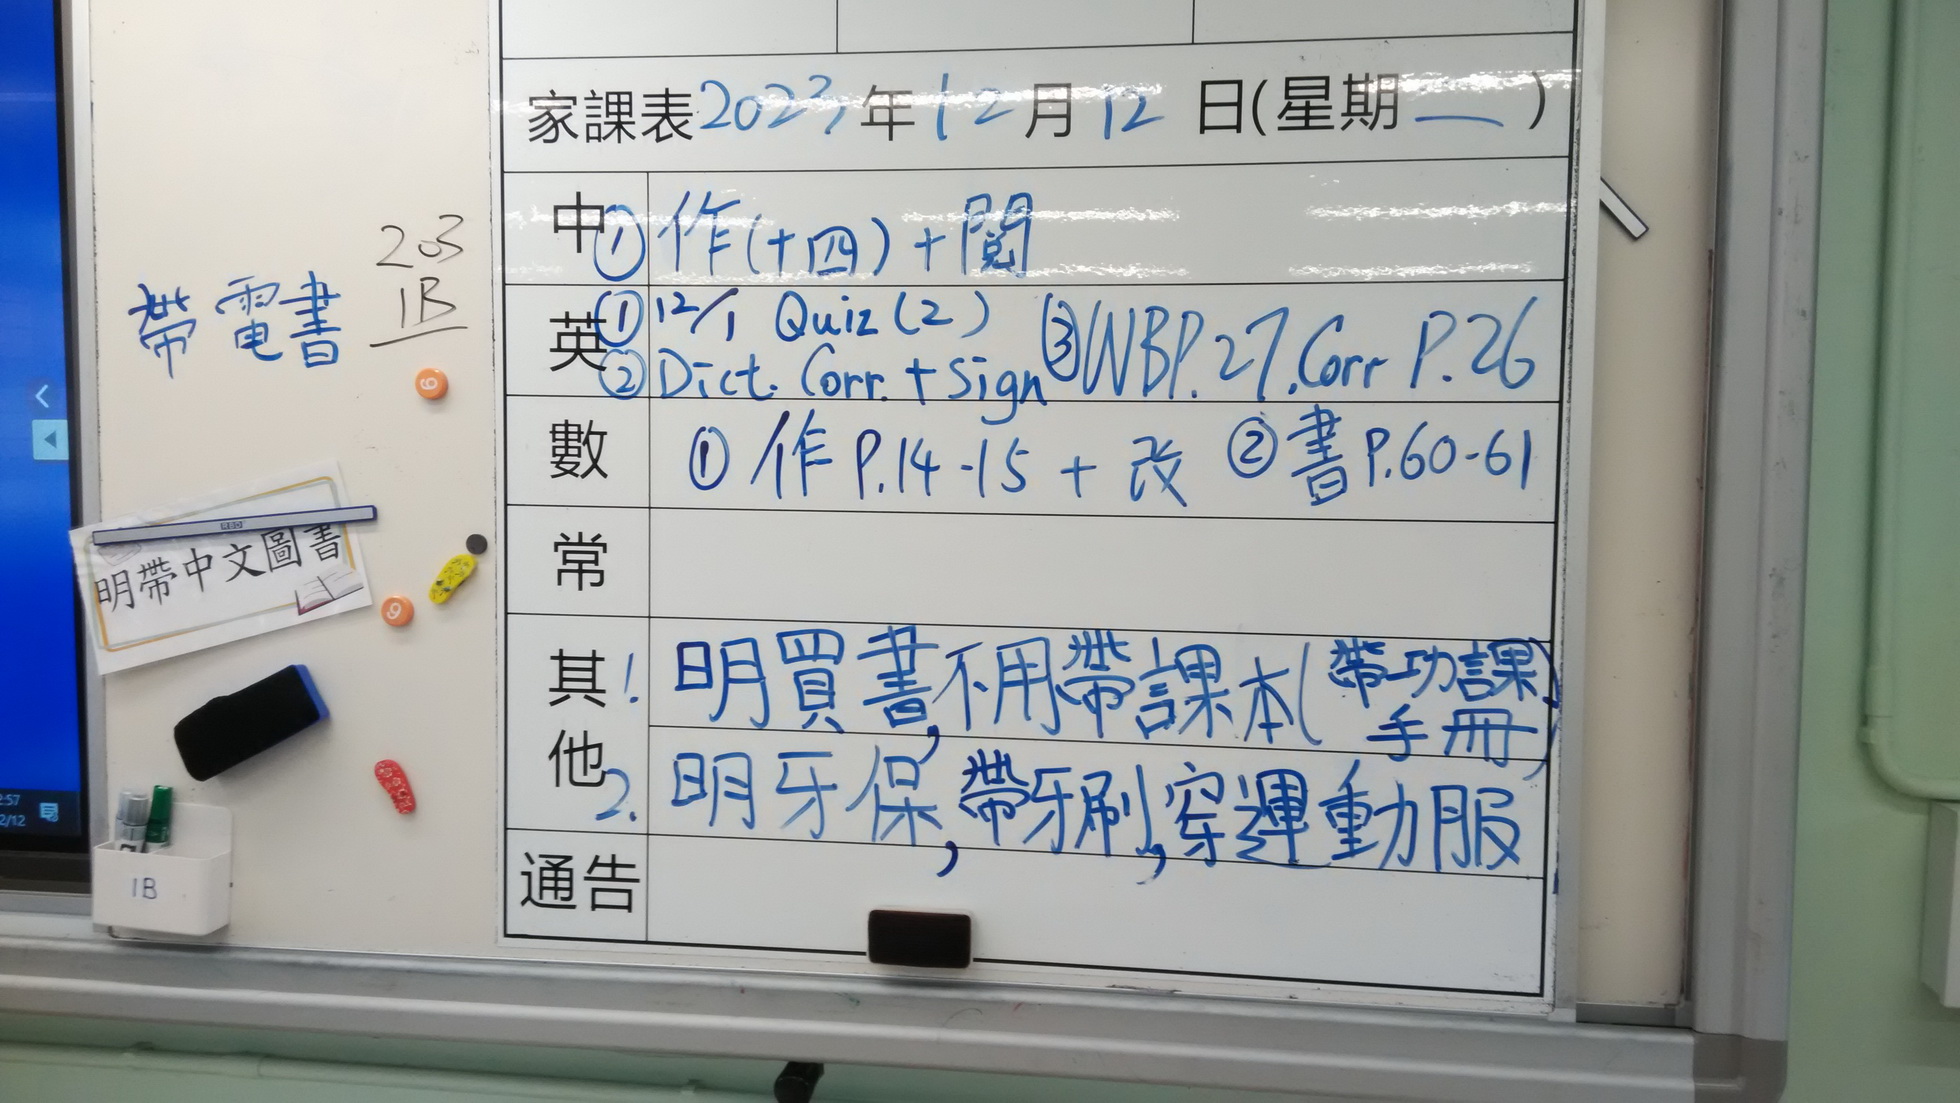 家課表2023年12月12日(星期二)
中 ①作(十四)+閱
英 ①12/1 Quiz(2) ③WBP.27,Corr P.26
②Dict. Corr. + Sign
數 ①作P.14-15+改 ②書P.60-61
常
其他 1. 明買書,不用帶課本(帶功課,手冊)
2. 明牙保,帶牙刷,穿運動服
通告
203
1B
帶電書
RBD
明帶中文圖書
9
6
1B
2:57
2/12